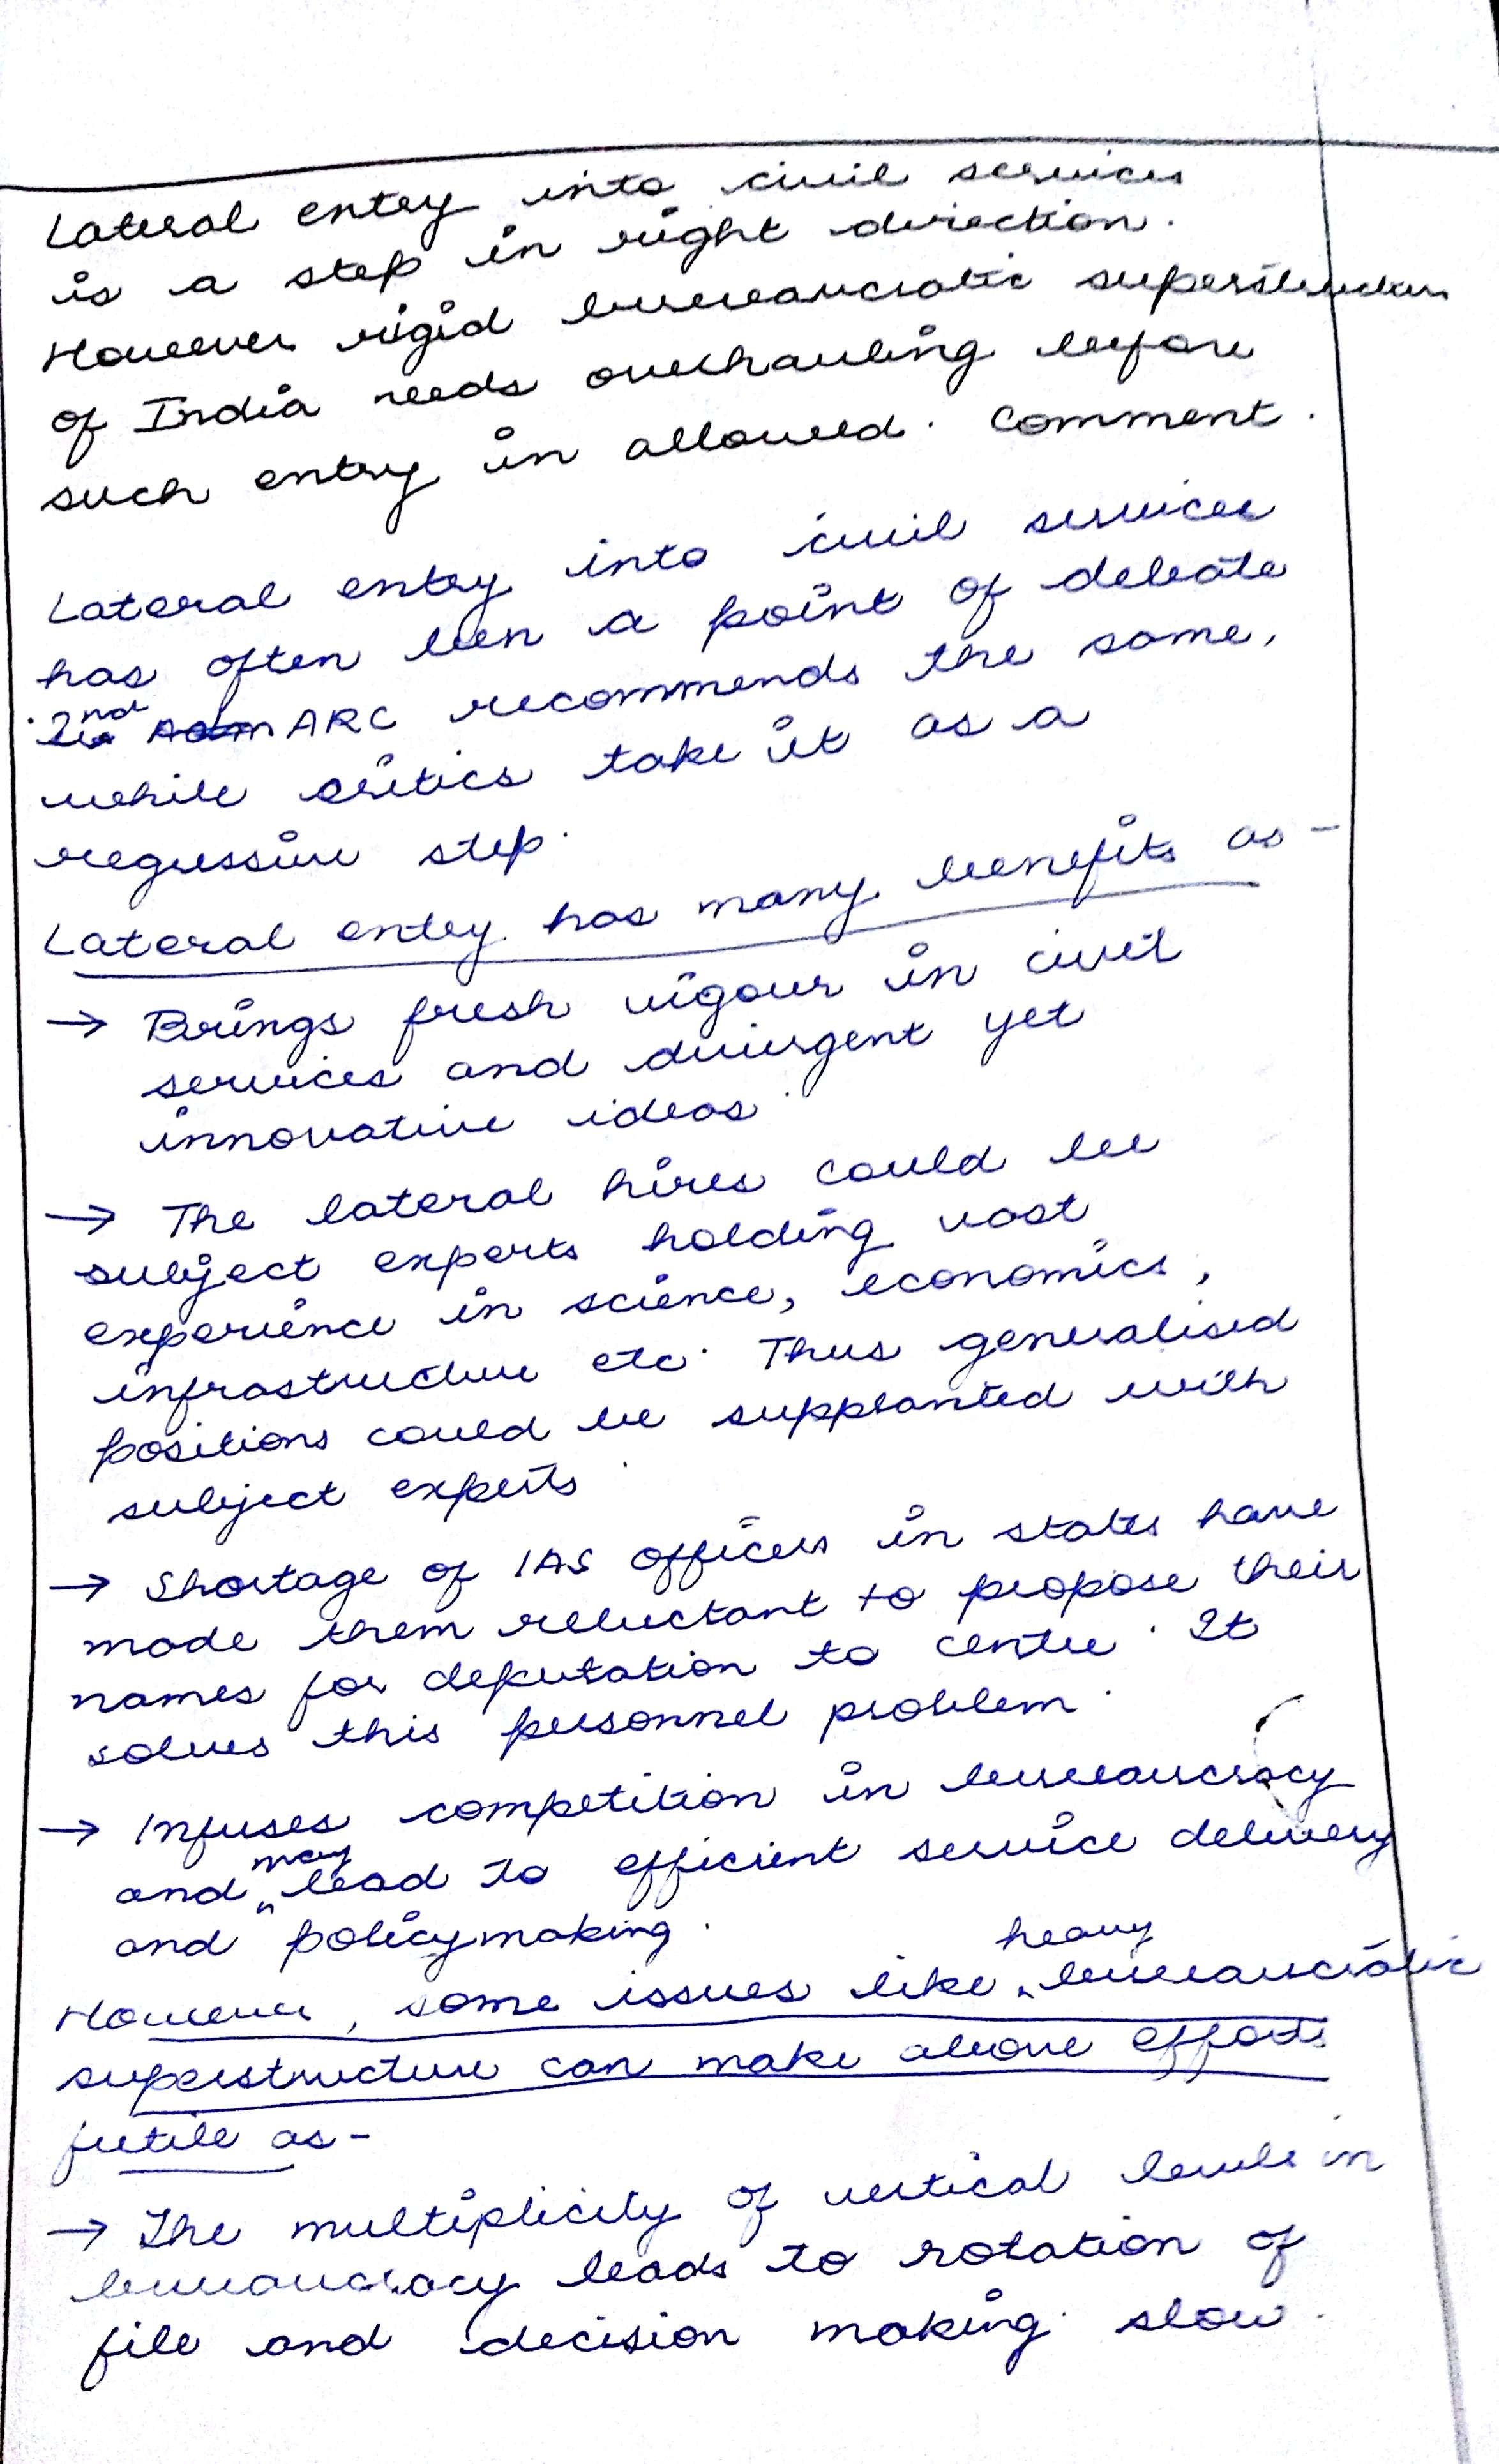 Lateral entry into civil services
is a step in right direction.
However rigid bureaucratic superstructure
of India needs overhauling before
such entry in allowed. Comment.
Lateral entry into civil services
has often been a point of debate
. 2nd ARC recommends the same,
while critics take it as a
regressive step.
Lateral entry has many benefits as -
→ Brings fresh vigour in civil
services and divergent yet
innovative ideas.
→ The lateral hires could be
subject experts holding vast
experience in science, economics,
infrastructure etc. Thus generalised
positions could be supplanted with
subject experts.
→ Shortage of IAS officers in states have
made them reluctant to propose their
names for deputation to centre. It
solves this personnel problem.
→ Infuses competition in bureaucracy
and may lead to efficient service delivery
and policymaking.
However, some issues like heavy bureaucratic
superstructure can make above efforts
futile as -
→ The multiplicity of vertical levels in
bureaucracy leads to rotation of
file and decision making slow.